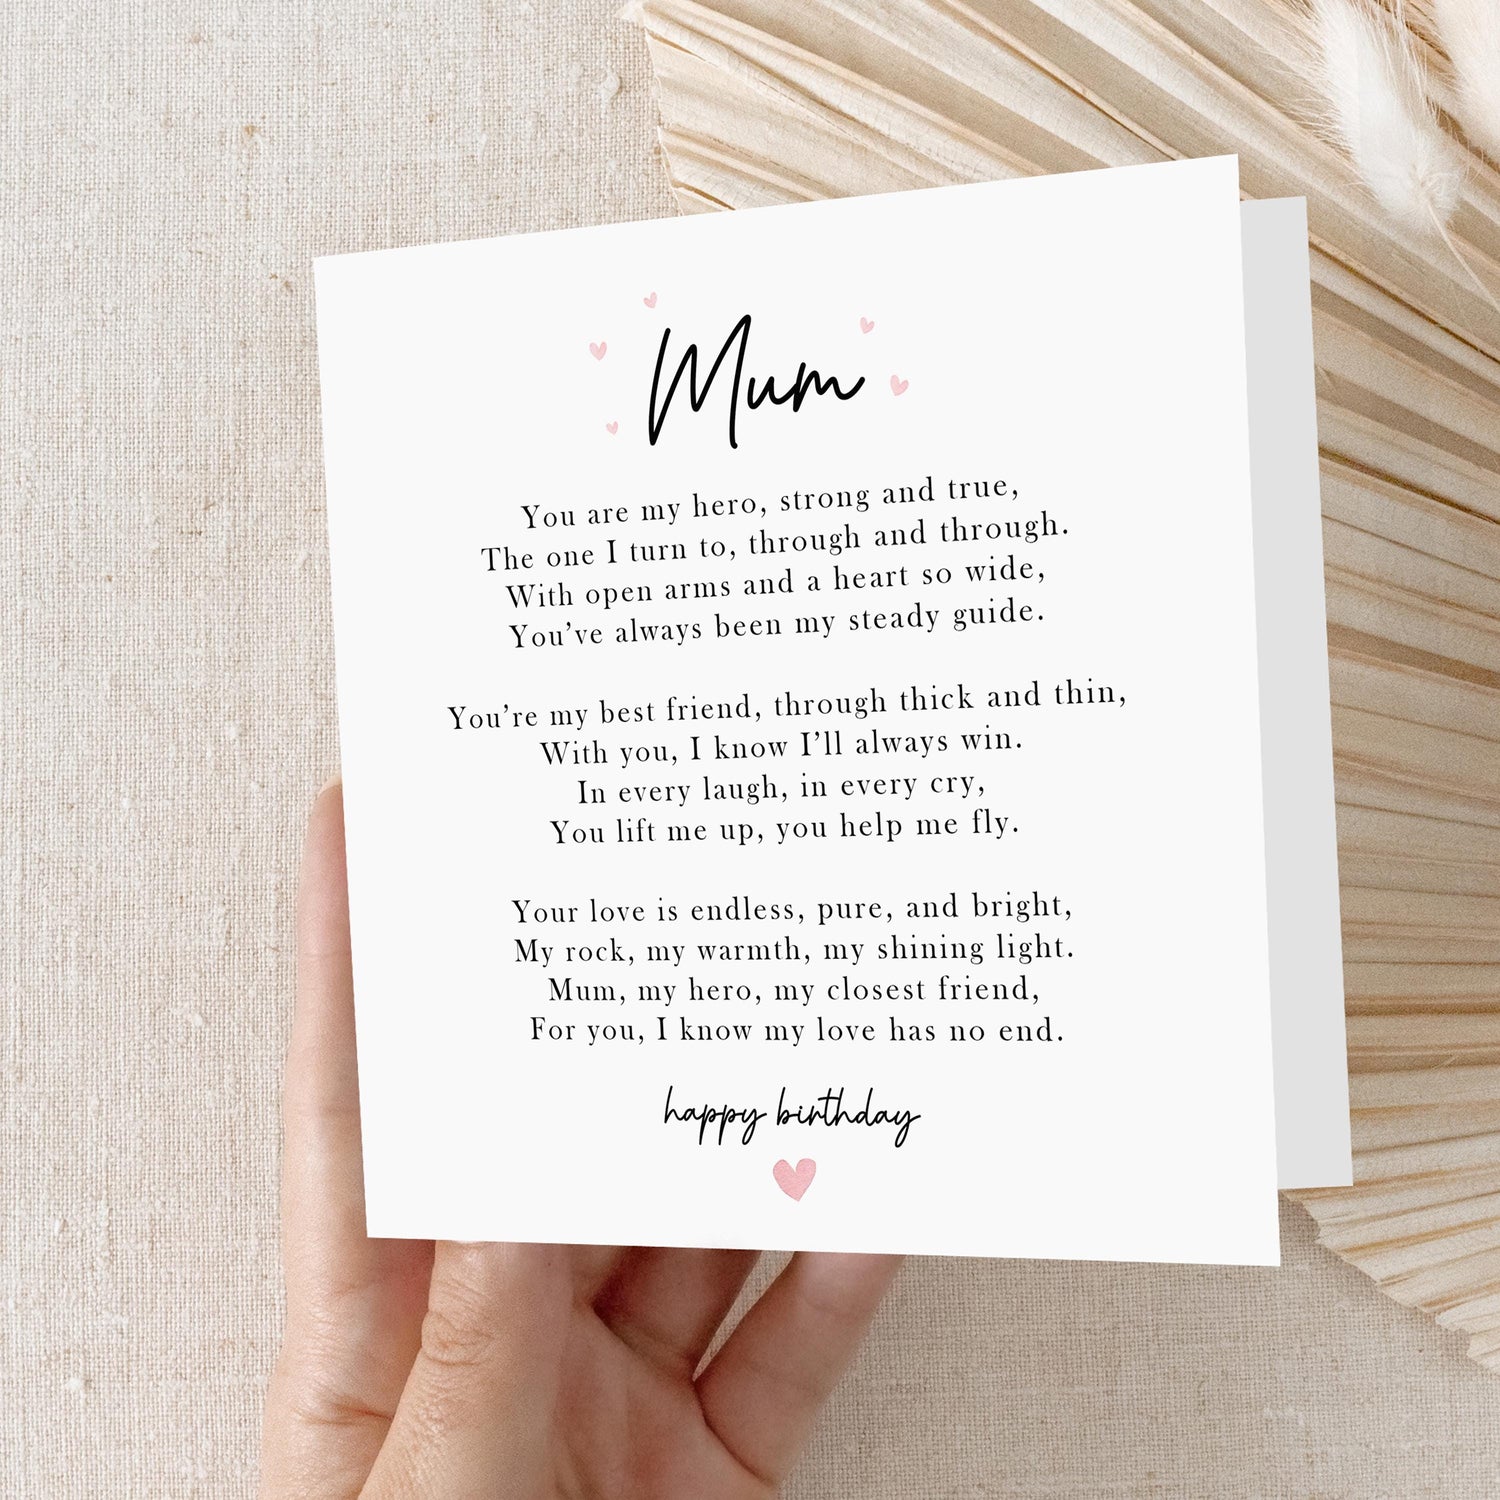 Mum
You are my hero, strong and true,
The one I turn to, through and through.
With open arms and a heart so wide,
You've always been my steady guide.
You're my best friend, through thick and thin,
With you, I know I'll always win.
In every laugh, in every cry,
You lift me up, you help me fly.
Your love is endless, pure, and bright,
My rock, my warmth, my shining light.
Mum, my hero, my closest friend,
For you, I know my love has no end.
happy birthday